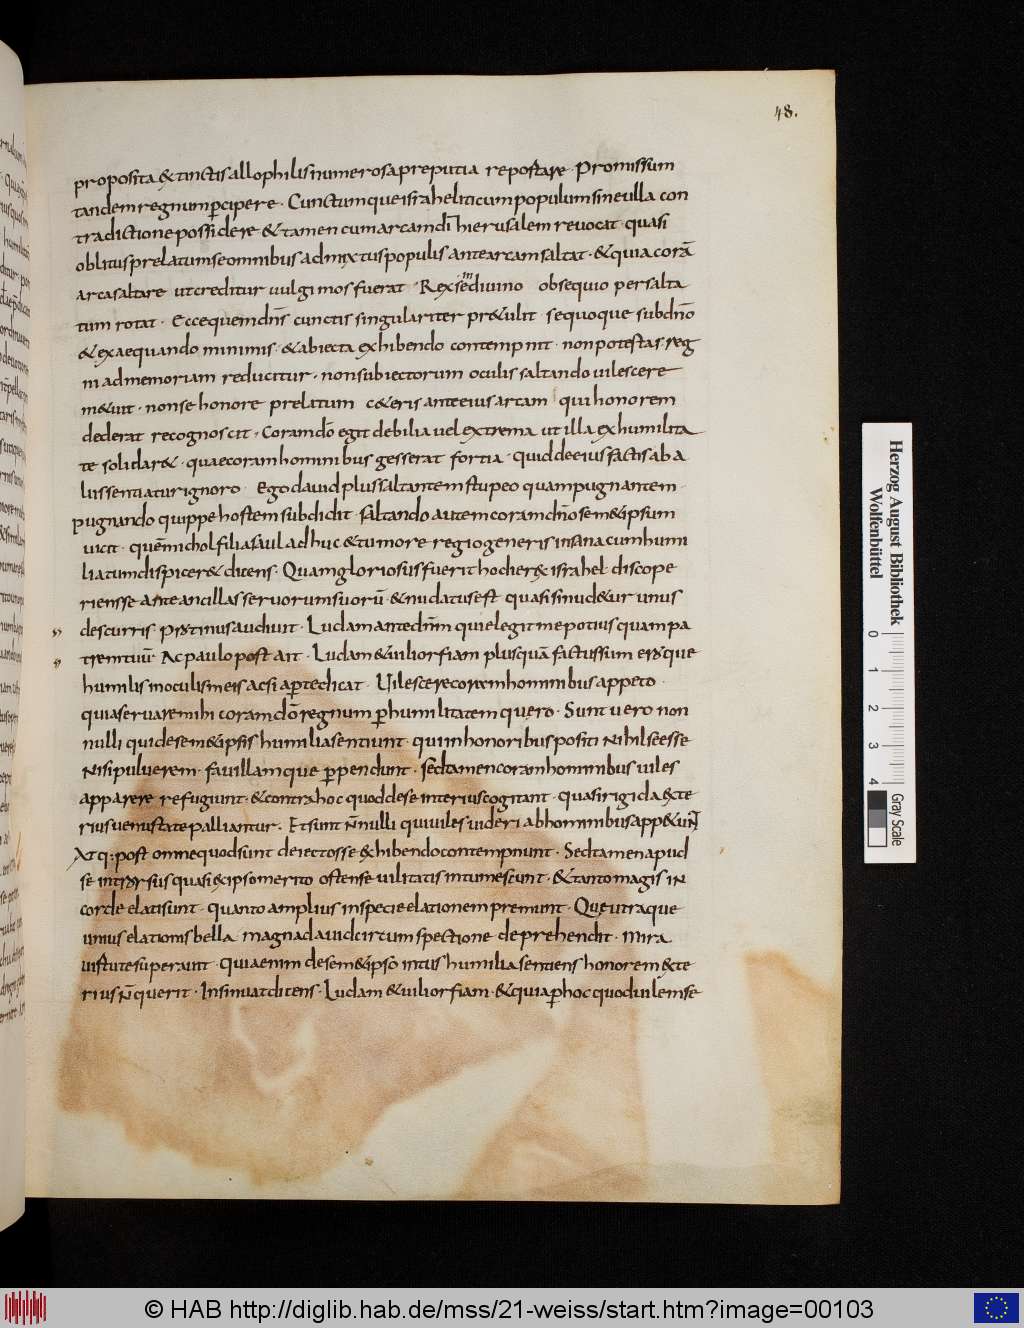 48.
proposita & tinctis allophilis numerosa preputia repostare · Promissum
tandem regnum pcipere · Cunctumque israheliticum populum sine ulla con
tradictione possidere & tamen cum arcam dī hierusalem revocat · quasi
oblitus prelatum se omnibus admixtus populis ante arcam saltat · & quia corā
arca saltare ut creditur vulgi mos fuerat · Rex semet divino obsequio per salta
tum rotat · Ecce quem dn̄s cunctis singulariter pr&ulit · se quoque sub dn̄o
& exaequando minimis · & abiecta exhibendo contempnit · non potestas reg
ni ad memoriam reducitur · non subiectorum oculis saltando vilescere
m&uit · non se honore prelatum c&eris ante eius arcam qui honorem
dederat recognoscit · Coram dō egit debilia vel extrema ut illa ex humilita
te solidar& · quae coram hominibus gesserat fortia · quid de eius factis ab a
liis sentiatur ignoro · Ego david plus saltantem stupeo quam pugnantem ·
pugnando quippe hostem subdidit · saltando autem coram dn̄o sem&ipsum
vicit · quē michol filia saul adhuc & tumore regio generis insana cum humi
liatum dispicer& dicens · Quam gloriosus fuerit hodie rex israhel discope
riens se ante ancillas servorum suorū · & nudatus est quasi si nud&ur unus
de scurris protinus audivit · Ludam ante dn̄m qui elegit me potius quam pa
trem tuū · Ac paulo post ait · Ludam & vilior fiam plus quā factus sum eroque
humilis in oculis meis ac si apte dicat · Vilescere coram hominibus appeto ·
quia servare mihi coram dō regnum p humilitatem quero · Sunt vero non
nulli qui de sem&ipsis humilia sentiunt · qui in honoribus positi nihil se esse
nisi pulverem · favillamque ppendunt · sed tamen coram hominibus viles
apparere refugiunt · & contra hoc quod de se interius cogitant · quasi rigida exte
rius venustate palliantur · Et sunt nnulli qui viles videri ab hominibus app&unt
Atq: post omne quod sunt deiectos se exhibendo contempnunt · Sed tamen apud
se introrsus quasi ex ipso merito ostense vilitatis intumescunt · & tanto magis in
corde elati sunt · quanto amplius in specie elationem premunt · Que utraque
unius elationis bella magna david circumspectione deprehendit · mira
virtute superavit · Quia enim de sem&ipso intus humilia sentiens honorem exte
rius n̄ querit · Insinuat dicens · Ludam & vilior fiam · & quia p hoc quod vilem se
Herzog August Bibliothek
Wolfenbüttel
0 1 2 3 4
Gray Scale
© HAB http://diglib.hab.de/mss/21-weiss/start.htm?image=00103